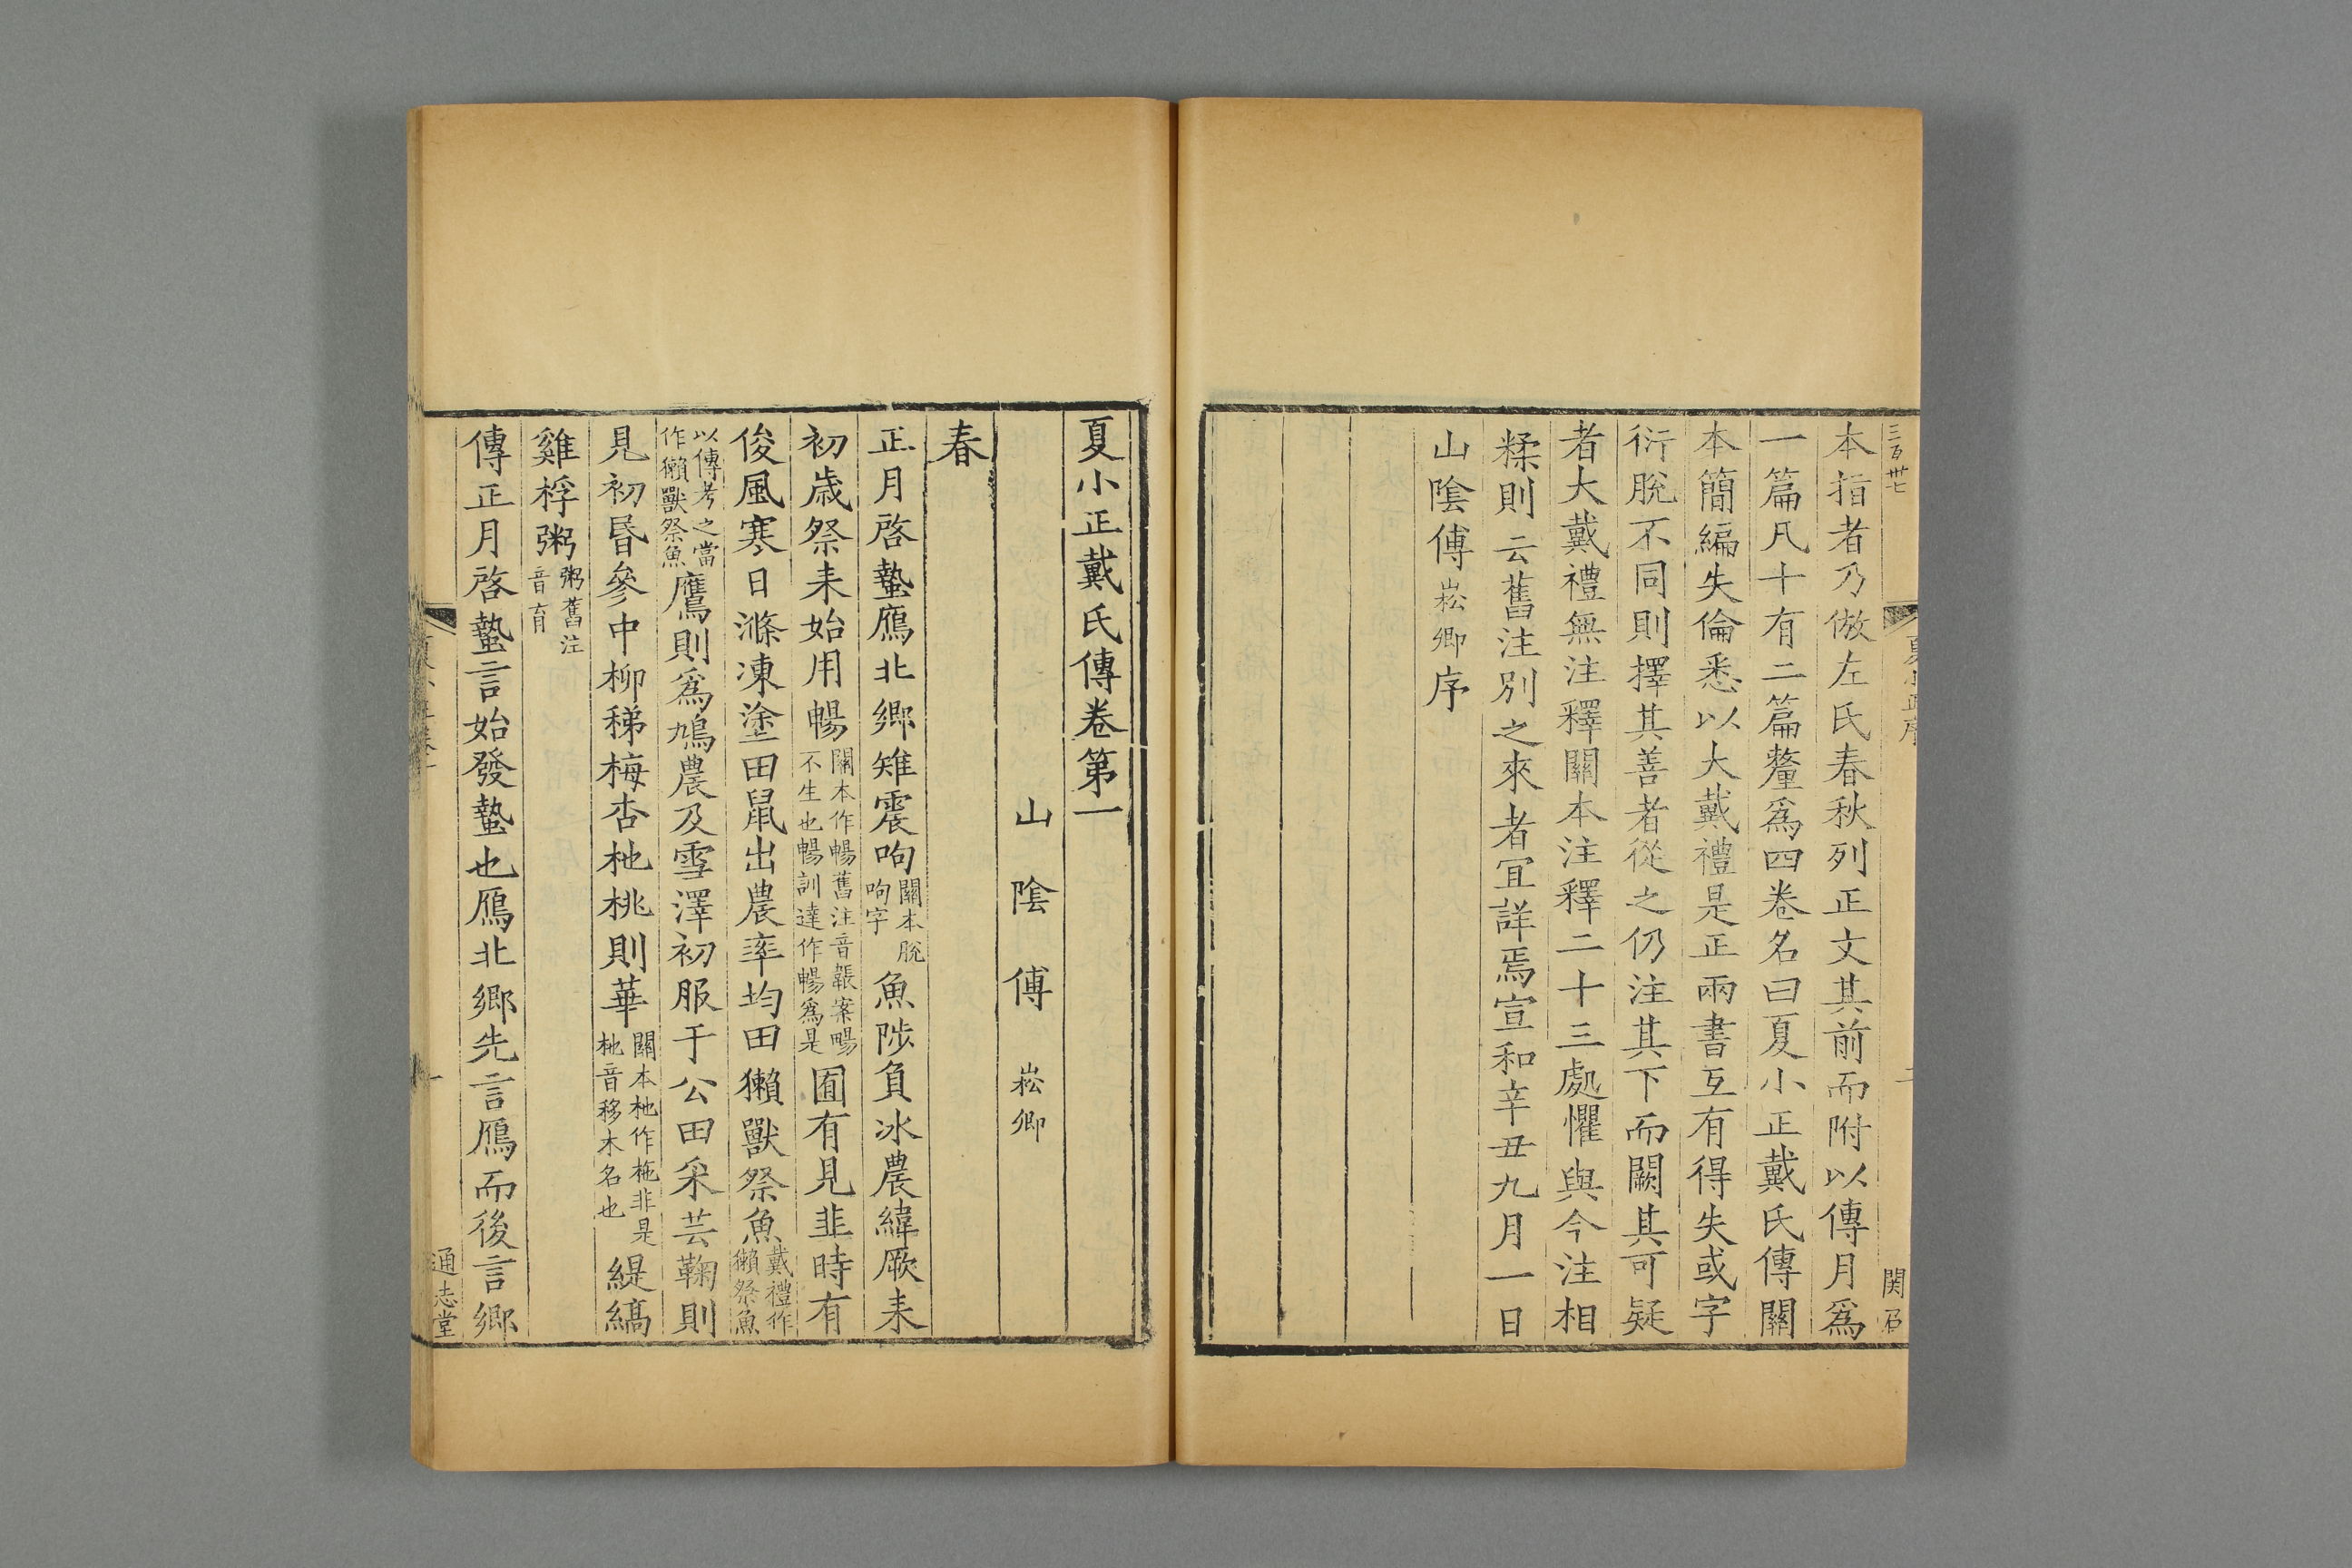 三百卅七
夏小正序
二
関召
本指者乃倣左氏春秋列正文其前而附以傳月爲
一篇凡十有二篇釐爲四卷名曰夏小正戴氏傳關
本簡編失倫悉以大戴禮是正兩書互有得失或字
衍脫不同則擇其善者從之仍注其下而闕其可疑
者大戴禮無注釋關本注釋二十三處懼與今注相
糅則云舊注別之來者宜詳焉宣和辛丑九月一日
山陰傅崧卿序
夏小正戴氏傳卷第一
山陰傅崧卿
春
正月啓蟄鴈北鄉雉震呴關本脫呴字魚陟負冰農緯厥耒
初歲祭耒始用暢關本作暢舊注音韔案暢不生也暢訓達作暢爲是囿有見韭時有
俊風寒日滌凍塗田鼠出農率均田獺獸祭魚戴禮作獺祭魚
以傳考之當作獺獸祭魚鷹則爲鳩農及雪澤初服于公田采芸鞠則
見初昏參中柳稊梅杏杝桃則華關本杝作柂非是杝音移木名也緹縞
雞桴粥粥舊注音育
傳正月啓蟄言始發蟄也鴈北鄉先言鴈而後言鄉
一
通志堂